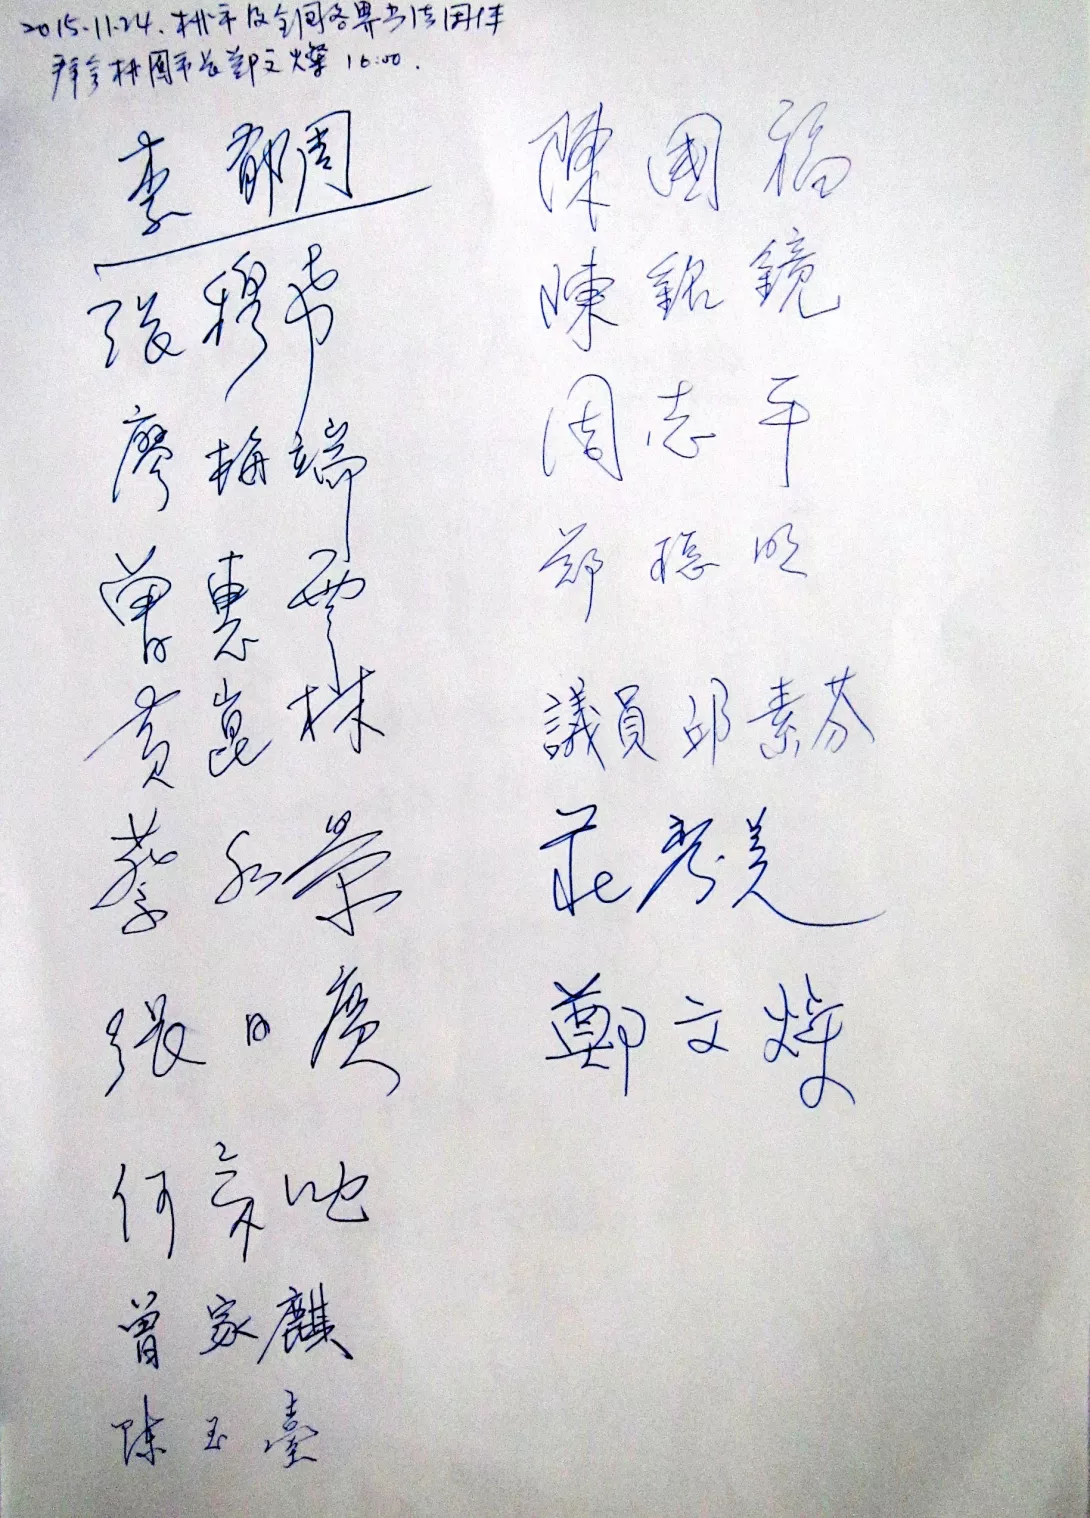 2015.11.24. 桃市及全國各界书法团体
拜會桃園市長鄭文燦 16:00.
李郁周
張穆希
廖梅端
曾惠雲
黃崑林
蔡永榮
張日廣
何京
曾家麒
陳玉臺
陳國福
陳銘鏡
周志平
郑聰明
議員邱素芬
莊秀美
鄭文燦